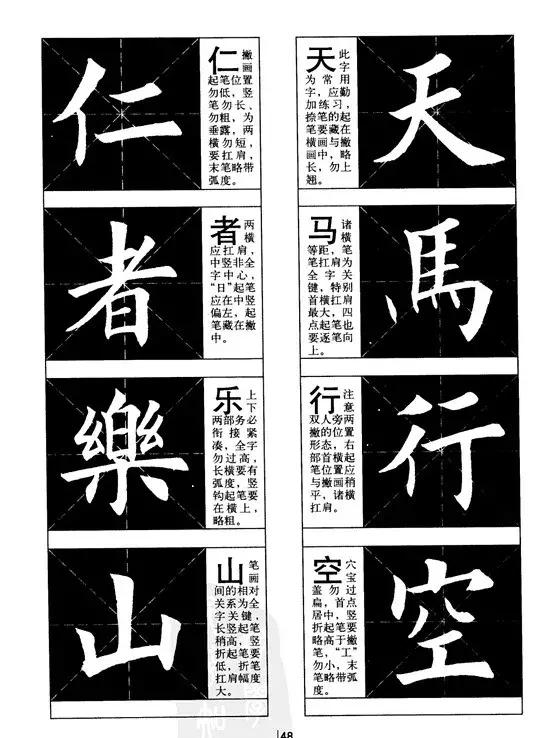 仁
仁撇画
起笔位置
勿低，竖
笔勿长、
勿粗，为
垂露，两
横勿短，
要扛肩，
末笔略带
弧度。
者
者两横
应扛肩，
中竖非全
字中心，
“日”起笔
应在中竖
偏左，起
笔藏在撇
中。
樂
乐上下
两部务必
衔接紧
凑，全字
勿过高，
长横要有
弧度，竖
钩起笔要
在横上，
略粗。
山
山笔画
间的相对
关系为全
字关键，
长竖起笔
稍高，竖
折起笔要
低，折笔
扛肩幅度
大。
天此字
为常用
字，应勤
加练习，
捺笔的起
笔要藏在
横画与撇
画中，略
长，勿上
翘。
天
马诸横
等距，笔
笔扛肩为
全字关
键，特别
首横扛肩
最大，四
点起笔也
要逐笔向
上。
馬
行注意
双人旁两
撇的位置
形态，右
部首横起
笔位置应
与撇画稍
平，诸横
扛肩。
行
空穴宝
盖勿过
扁，首点
居中，竖
折起笔要
略高于撇
笔，“工”
勿小，末
笔略带弧
度。
空
48